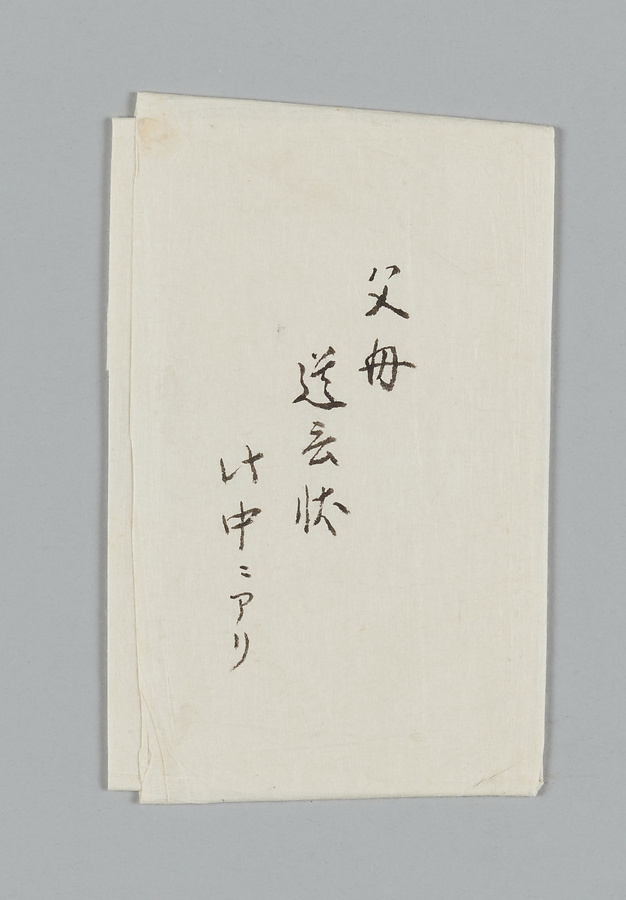 父母
遺言状
此中ニアリ